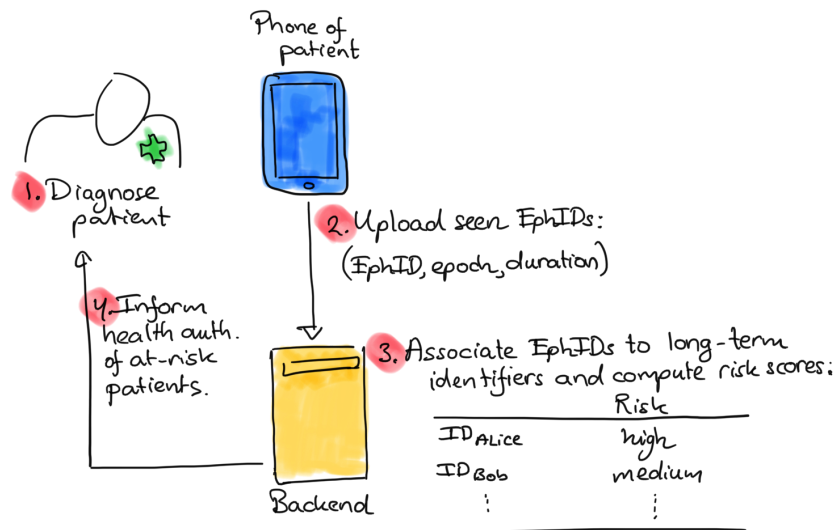 Phone of
patient
1. Diagnose
patient
2. Upload seen EphIDs:
(EphID, epoch, duration)
4. Inform
health auth.
of at-risk
patients.
3. Associate EphIDs to long-term
identifiers and compute risk scores:
Risk
ID Alice high
ID Bob medium
Backend